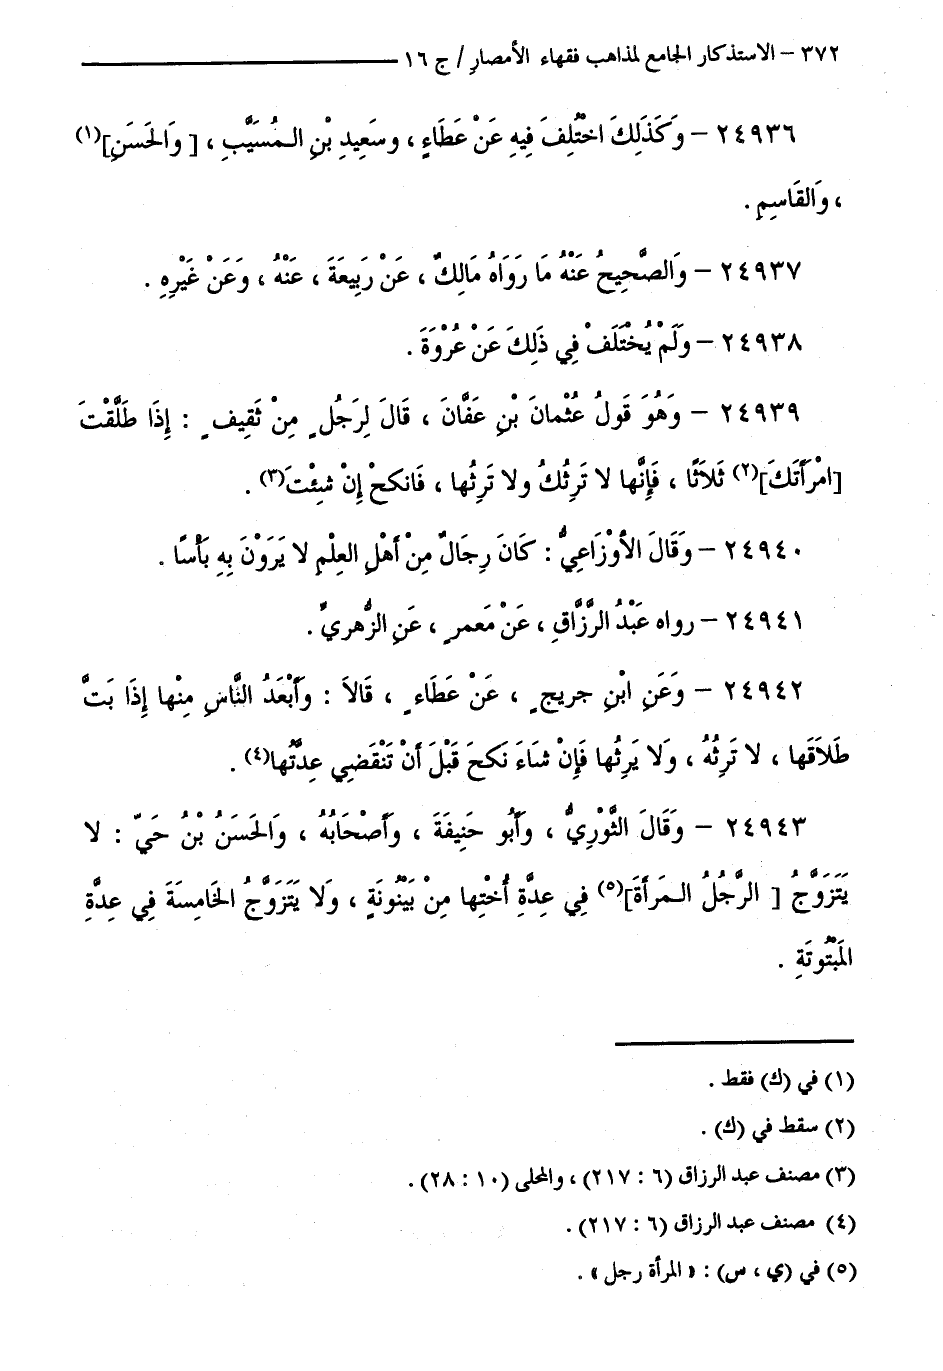 ٣٧٢ – الاستذكار الجامع لمذاهب فقهاء الأمصارِ / ج ١٦
٢٤٩٣٦ – وَكَذَلِكَ اخْتُلِفَ فِيهِ عَنْ عَطَاءٍ ، وسَعِيدِ بْنِ الـمُسَيَّبِ ، [ وَالحَسَنِ](١)
، وَالقَاسِمِ .
٢٤٩٣٧ – وَالصَّحِيحُ عَنْهُ مَا رَوَاهُ مَالِكٌ ، عَنْ رَبِيعَةَ ، عَنْهُ ، وَعَنْ غَيْرِهِ .
٢٤٩٣٨ – وَلَمْ يُخْتَلَفْ فِي ذَلِكَ عَنْ عُرْوَةَ .
٢٤٩٣٩ – وَهُوَ قَولُ عُثْمانَ بْنِ عَفَّانَ ، قَالَ لِرَجُلٍ مِنْ ثَقِيفٍ : إِذَا طَلَّقْتَ
[امْرَأَتَكَ](٢) ثَلاَثًا ، فَإِنَّها لا تَرِثُكُ ولا تَرِثُها ، فَانكحْ إِنْ شِئْتَ(٣) .
٢٤٩٤٠ – وَقَالَ الأوْزَاعِيُّ : كَانَ رِجَالٌ مِنْ أهْلِ العِلْمِ لا يَرَوْنَ بِهِ بَأْسًا .
٢٤٩٤١ – رواه عَبْدُ الرَّزَّاقِ ، عَنْ مَعمرٍ ، عَنِ الزُّهريِّ .
٢٤٩٤٢ – وَعَنِ ابْنِ جريجٍ ، عَنْ عَطَاءٍ ، قَالاَ : وَأَبْعَدُ النَّاسِ مِنْها إِذَا بَتَّ
طَلاَقَها ، لا تَرِثُهُ ، وَلا يَرِثُها فَإِنْ شَاءَ نَكحَ قَبْلَ أنْ تَنْقَضِي عِدَّتُها(٤) .
٢٤٩٤٣ – وَقَالَ الثَّوْرِيُّ ، وَأَبُو حَنِيفَةَ ، وَأَصْحَابُهُ ، وَالحَسَنُ بْنُ حَيّ : لا
يَتَزَوَّجُ [ الرَّجُلُ الـمَرأةَ](٥) فِي عِدَّةِ أُخْتِها مِنْ بَيْنُونَةٍ ، وَلا يَتَزَوَّجُ الخَامِسَةَ فِي عِدَّةِ
المَبْتُوتَةِ .
(١) في (ك) فقط .
(٢) سقط في (ك) .
(٣) مصنف عبد الرزاق (٦ : ٢١٧) ، والمحلى (١٠ : ٢٨) .
(٤) مصنف عبد الرزاق (٦ : ٢١٧) .
(٥) في (ي ، س) : « المرأة رجل » .